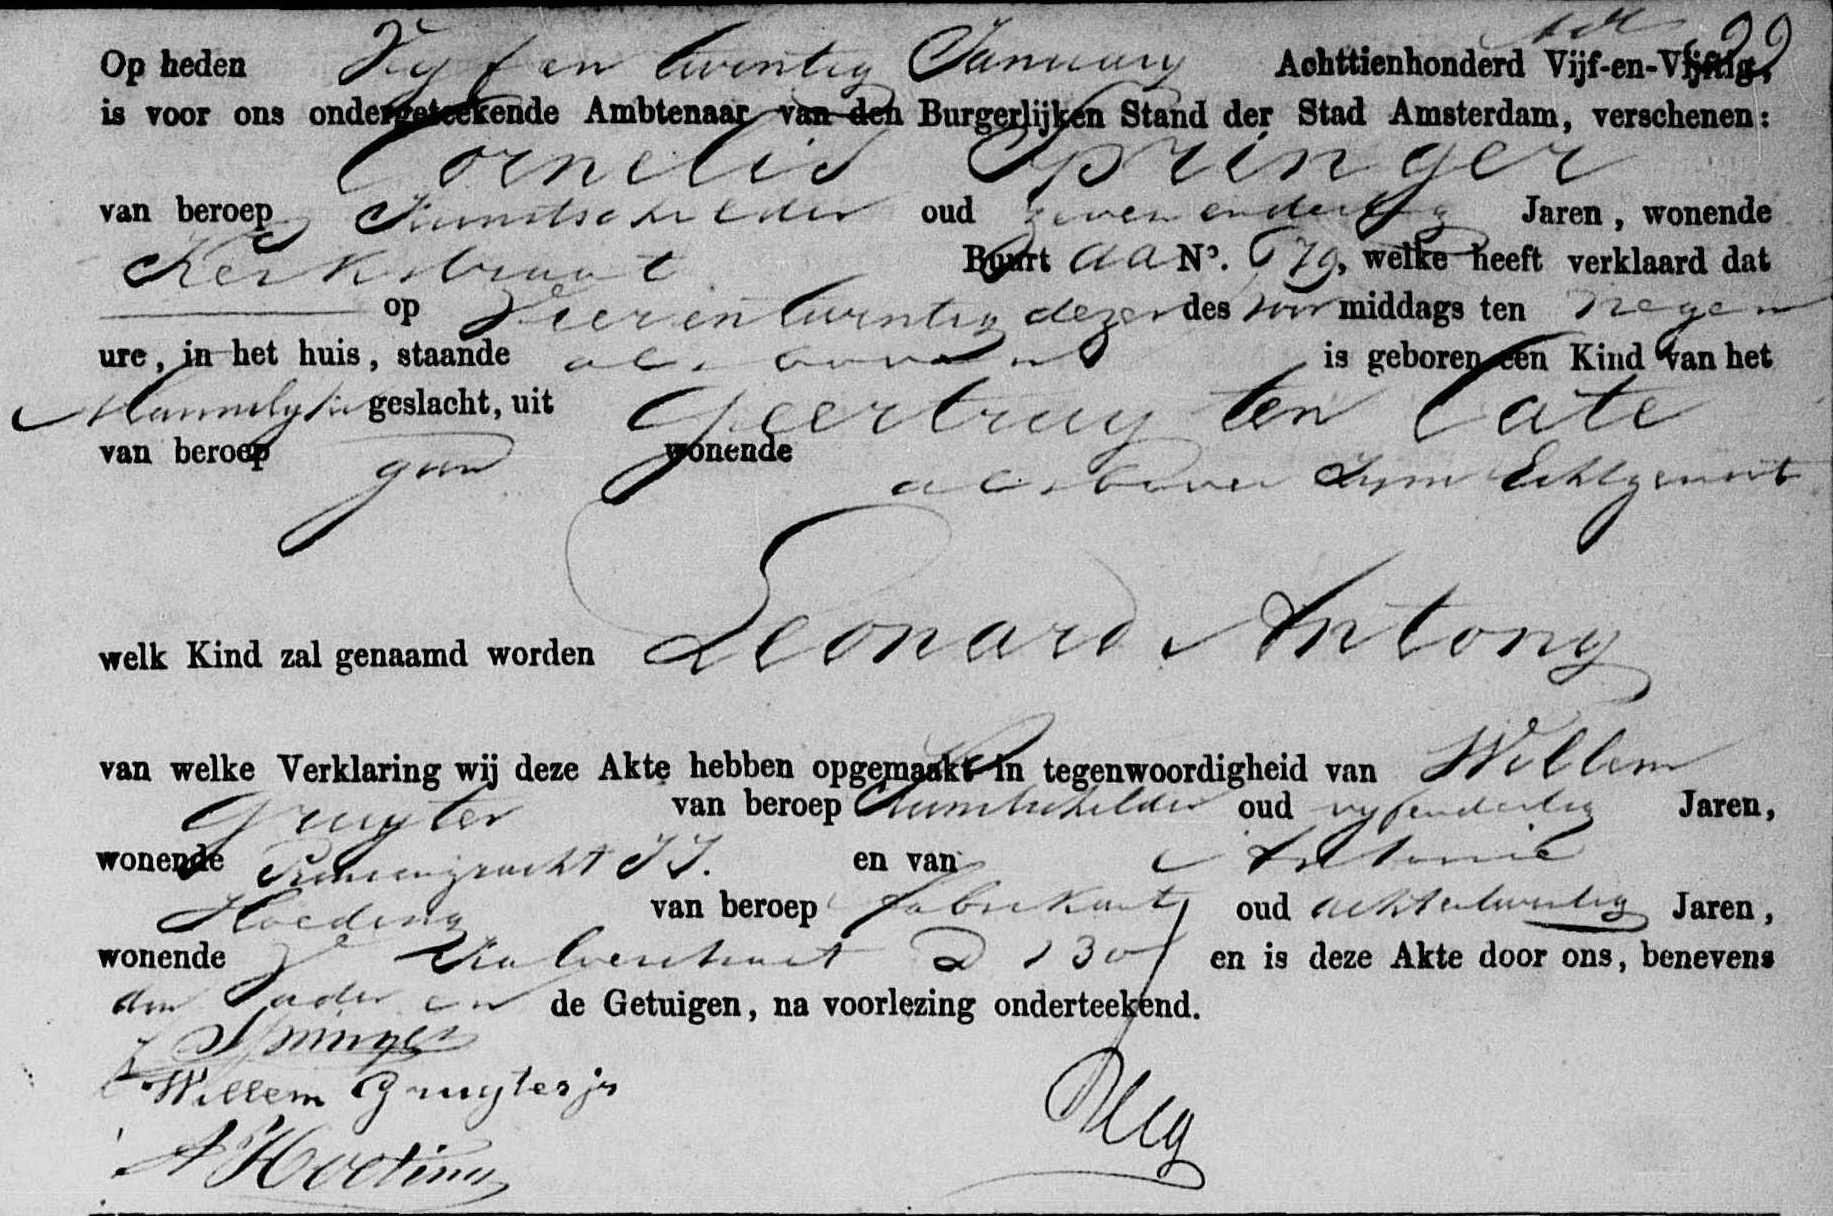 99
Op heden Vyf en twintig January Achttienhonderd Vijf-en-Vijftig,
is voor ons ondergeteekende Ambtenaar van den Burgerlijken Stand der Stad Amsterdam, verschenen:
Cornelis Springer
van beroep Kunstschilder oud zeven endertig Jaren, wonende
Kerkstraat Buurt AA No. 679, welke heeft verklaard dat
op Vier en twintig dezer des voor middags ten negen
ure, in het huis, staande als boven is geboren een Kind van het
Mannelyke geslacht, uit Geertruy ten Cate
van beroep geen wonende als boven zyne Echtgenoot
welk Kind zal genaamd worden Leonard Antony
van welke Verklaring wij deze Akte hebben opgemaakt in tegenwoordigheid van Willem
Gruyter van beroep Kunstschilder oud vyfendertig Jaren,
wonende Prinsengracht JJ. en van Antonie
Hoeting van beroep fabrikant oud achtentwintig Jaren,
wonende Kalverstraat D 130 en is deze Akte door ons, benevens
den Vader en de Getuigen, na voorlezing onderteekend.
Springer
Willem Gruyter jr
A Hoeting